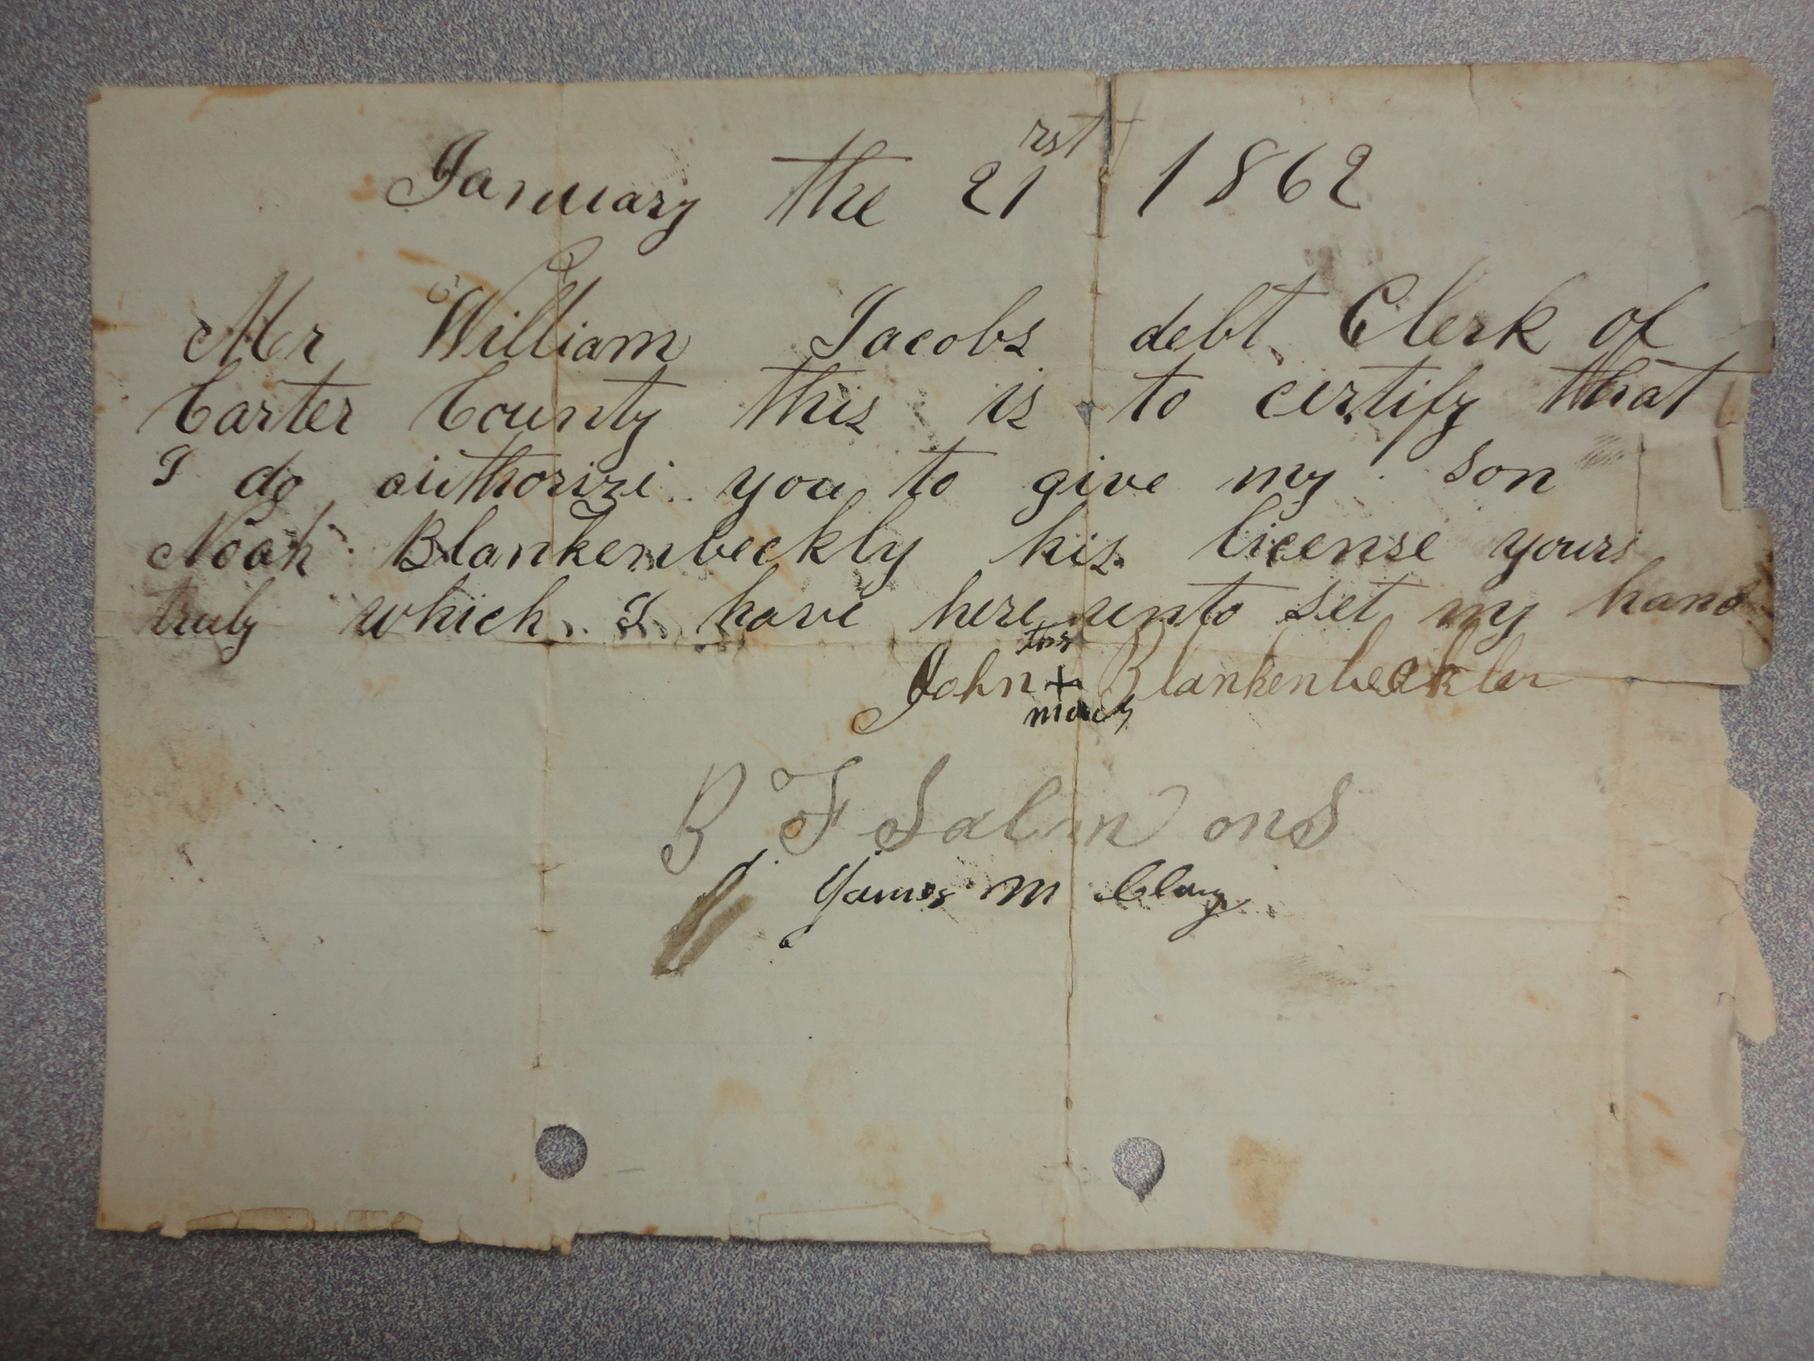 January the 21rst 1862
Mr William Jacobs debt. Clerk of
Carter County this is to certify that
I do authorize you to give my son
Noah Blankenbeckly his license yours
truly which I have here unto set my hand
his
John + Blankenbeckler
mark
B F Salmons
James M Clay